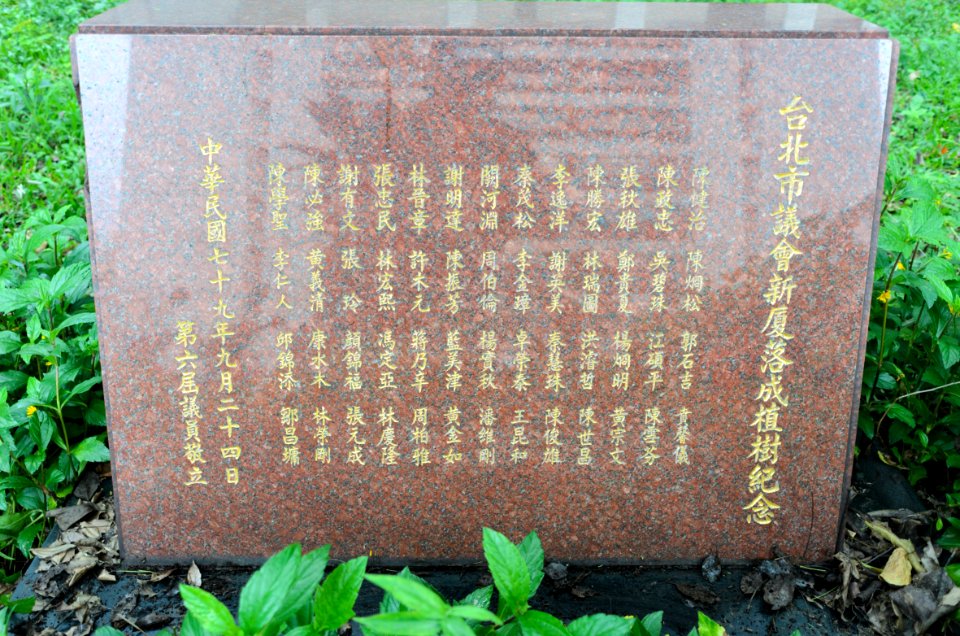 台北市議會新厦落成植樹紀念
陳健治 陳烱松 郭石吉 賁馨儀
陳政忠 吳碧珠 江碩平 陳雪芬
張秋雄 鄭貴夏 楊烱明 黃宗文
陳勝宏 林瑞圖 洪濬哲 陳世昌
李逸洋 謝英美 秦慧珠 陳俊雄
秦茂松 李金璋 卓榮泰 王昆和
關河淵 周伯倫 楊實秋 潘維剛
謝明達 陳振芳 藍美津 黃金如
林晉章 許木元 蔣乃辛 周柏雅
張忠民 林宏熙 馮定亞 林慶隆
謝有文 張玲 顏錦福 張元成
陳必強 黃義清 康水木 林榮剛
陳學聖 李仁人 邱錦添 鄒昌墉
中華民國七十九年九月二十四日
第六屆議員敬立